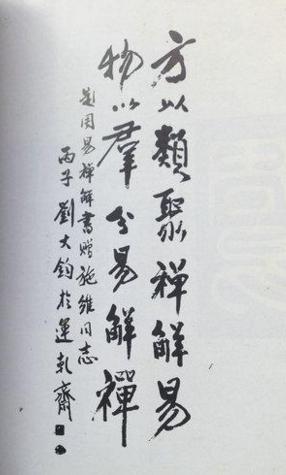 方以類聚禪解易
物以羣分易解禪
題周易禪解書贈施維同志
丙子劉大鈞於運乾齋